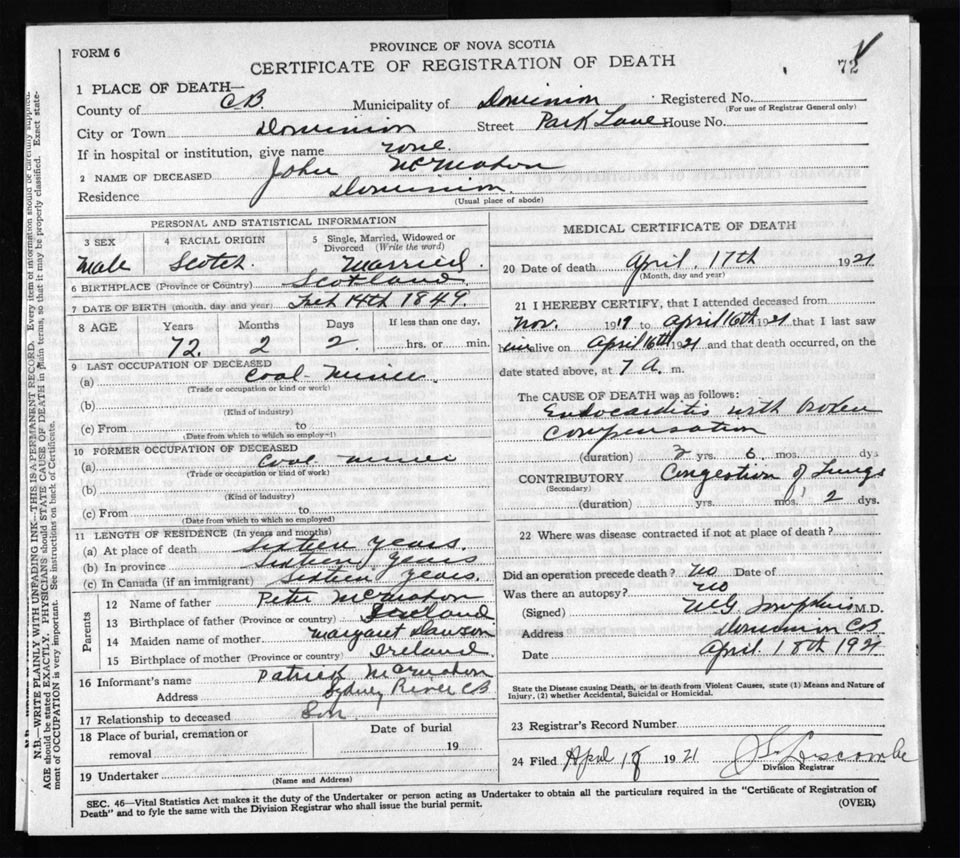 FORM 6
PROVINCE OF NOVA SCOTIA
CERTIFICATE OF REGISTRATION OF DEATH
72
1 PLACE OF DEATH—
County of CB Municipality of Dominion Registered No.
(For use of Registrar General only)
City or Town Dominion Street Park Lane House No.
If in hospital or institution, give name
2 NAME OF DECEASED John McMahon
Residence Dominion
(Usual place of abode)
PERSONAL AND STATISTICAL INFORMATION
3 SEX 4 RACIAL ORIGIN 5 Single, Married, Widowed or Divorced (Write the word)
Male Scotch. Married.
6 BIRTHPLACE (Province or Country) Scotland
7 DATE OF BIRTH (month, day and year) Feb 14th 1849
8 AGE Years Months Days If less than one day,
72. 2 2. hrs. or min.
9 LAST OCCUPATION OF DECEASED
(a) Coal Miner.
(Trade or occupation or kind or work)
(b)
(Kind of industry)
(c) From to
(Date from which to which so employed)
10 FORMER OCCUPATION OF DECEASED
(a) Coal miner
(Trade or occupation or kind of work)
(b)
(Kind of industry)
(c) From to
(Date from which to which so employed)
11 LENGTH OF RESIDENCE (In years and months)
(a) At place of death Sixteen years.
(b) In province Sixteen years
(c) In Canada (if an immigrant) Sixteen years.
Parents
12 Name of father Peter McMahon
13 Birthplace of father (Province or country)
14 Maiden name of mother Margaret Dawson
15 Birthplace of mother (Province or country) Ireland.
16 Informant's name Patrick McMahon
Address Sydney River CB
17 Relationship to deceased Son
18 Place of burial, cremation or removal Date of burial
19
19 Undertaker
(Name and Address)
MEDICAL CERTIFICATE OF DEATH
20 Date of death April 17th 1921
(Month, day and year)
21 I HEREBY CERTIFY, that I attended deceased from
Nov. 1919 to April 16th 1921 that I last saw
him alive on April 16th 1921 and that death occurred, on the
date stated above, at 7 A. m.
The CAUSE OF DEATH was as follows:
Endocarditis with broken
compensation
(duration) 2 yrs. 6 mos. dys
CONTRIBUTORY Congestion of Lungs
(Secondary)
(duration) yrs. mos. 2 dys.
22 Where was disease contracted if not at place of death?
Did an operation precede death? no Date of
Was there an autopsy? no
(Signed) M.D.
Address Dominion CB
Date April 18th 1921
State the Disease causing Death, or in death from Violent Causes, state (1) Means and Nature of
Injury, (2) whether Accidental, Suicidal or Homicidal.
23 Registrar's Record Number
24 Filed April 18 1921
Division Registrar
SEC. 46—Vital Statistics Act makes it the duty of the Undertaker or person acting as Undertaker to obtain all the particulars required in the "Certificate of Registration of
Death" and to fyle the same with the Division Registrar who shall issue the burial permit.
(OVER)
N.B.—WRITE PLAINLY WITH UNFADING INK—THIS IS A PERMANENT RECORD. Every item of information should be carefully supplied.
AGE should be stated EXACTLY. PHYSICIANS should STATE CAUSE OF DEATH in plain terms, so that it may be properly classified. Exact state-
ment of OCCUPATION is very important. See instructions on back of Certificate.